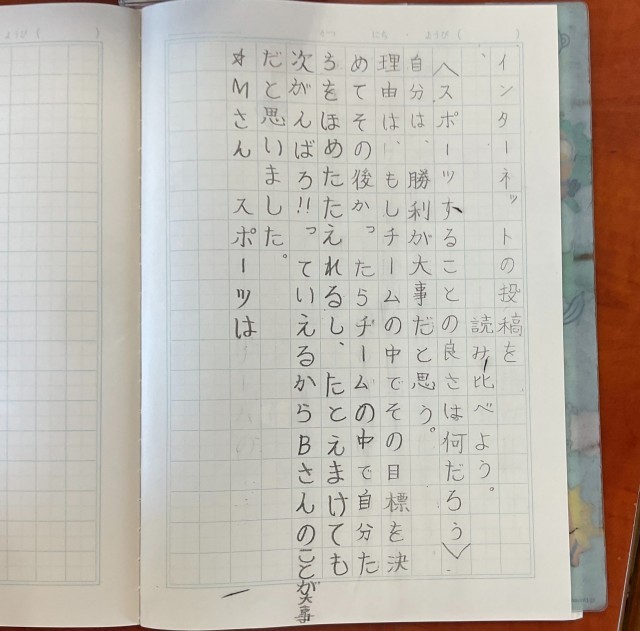 ようび（　　　）
がつ　にち・ようび（　　　）
インターネットの投稿を
読み比べよう。
〈スポーツすることの良さは何だろう〉
自分は、勝利が大事だと思う。
理由は、もしチームの中でその目標を決
めてその後かったらチームの中で自分た
ちをほめたたえれるし、たとえまけても
次がんばろ!!っていえるからBさんのことが大事
だと思いました。
☆Mさん　スポーツは